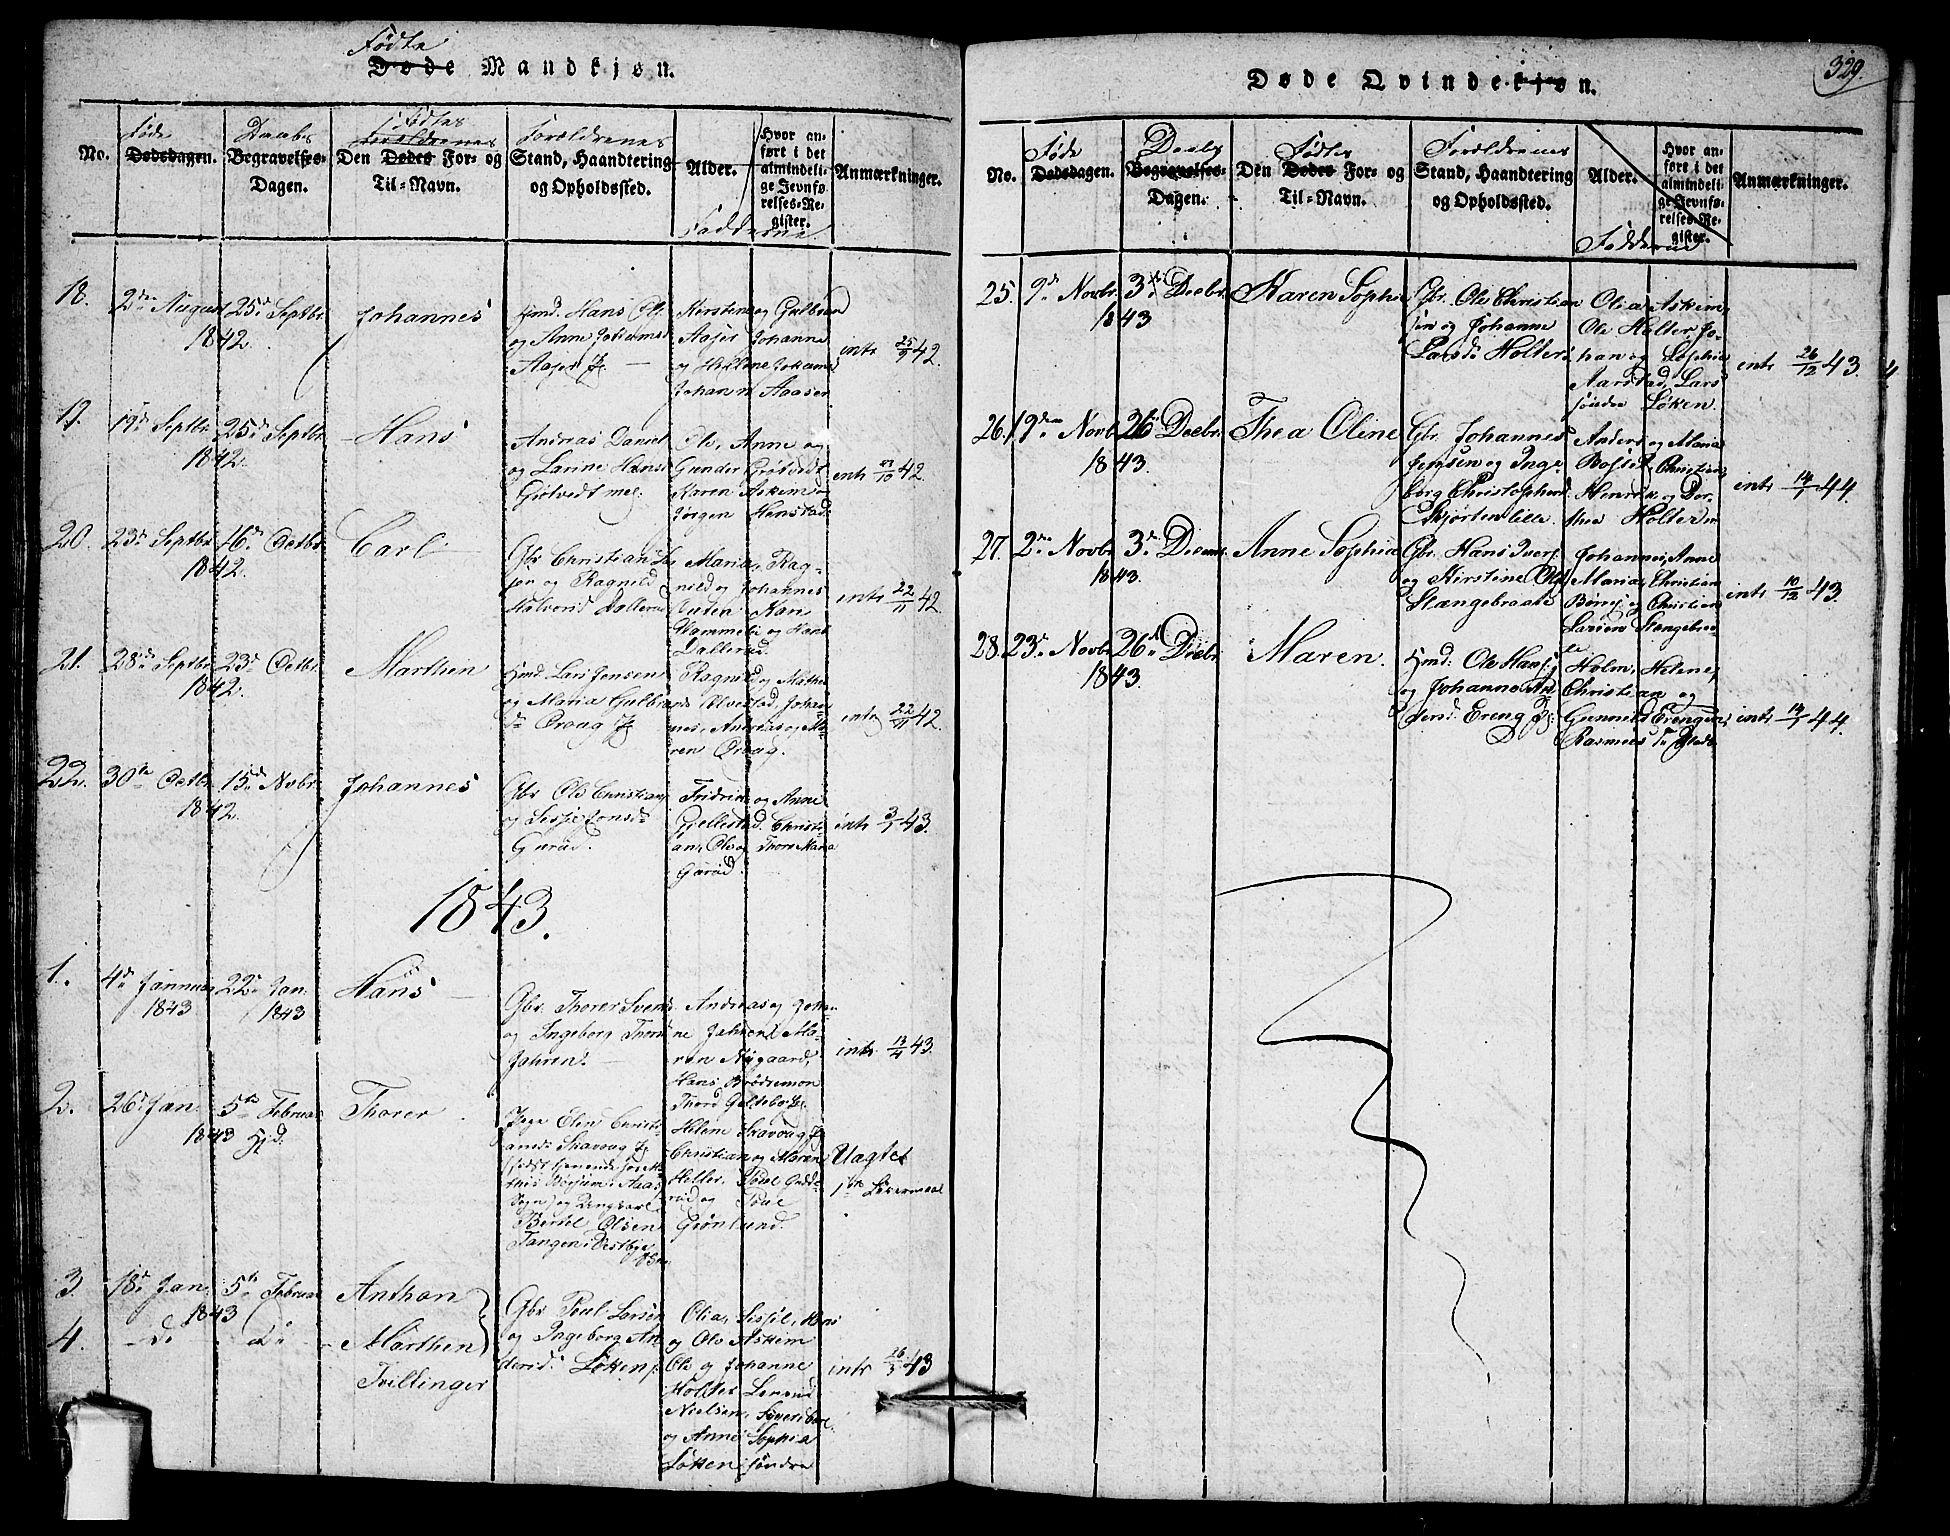 Fødte
Døde Mandkjøn.
No.
Føde
Dødsdagen.
Daabs
Begravelses-
Dagen.
Fødtes
Den Dødes For- og
Til-Navn.
Forældrenes
Stand, Haandtering
og Opholdssted.
Alder.
Hvor an-
ført i det
almindeli-
ge Jevnfø-
relses-Re-
gister.
Fadderne
Anmærkninger.
18.
2den August
1842.
25de Septbr
Johannes
Hans Ol.
og Anne Johannesd
Aajer
Kirstine og Gulbrand
Aajer Johanne
og Hellene
Johan n Aaaser
intr 25/9 42.
19.
19de Septbr
1842.
25de Septbr
Hans
Andreas Daniel
og Larine Hans
Grøtvedt
Ole, Anne og
Gunder Grøtvedt
Karen Askim
Jørgen Henstad
intr 42.
20.
23de Septbr
1842.
16de Octbr
Carl
Gbr Christian
og Ragnild
Halvorsd Dallerud
Maria, Rag-
nild og Johannes
Kari
og Hans
Dallerud.
intr 22/11 42
21.
28de Septbr
1842.
23de Octbr
Marthen
Hmd Lars Jensen
og Maria Gulbrands
Ragnild og Mathea
Ølvestad, Johan-
nes, Andreas og Ma-
ren
intr 22/11 42
22.
30te Octbr
1842.
15de Novbr
Johannes
Gbr Ole Christians
og Sissje Jonsd
Garud.
Fridrik og Anne
Gjellestad. Christi-
an, Ole og Thore Maria
Garud.
intr 3/1 43.
1843.
1.
4de Januar
1843
22de Jan.
1843
Hans
Gbr. Thorer Svends.
og Ingeborg Thors
Jahren.
Andreas og Joha-
ne Jahren, Ma-
ren Nygaard,
Hans Brødremon
Thord
intr 13/4 43.
2.
26de Jan.
1843
5te Februar
Hjd.
Thorer
Pige Elen Christi-
ansd Skavaag
Aas
Sogn) og Ungkarl
Bertel Olsen
Tangen i Vestbye
Helene Skavaag
Christian og Maren
Heller, Poul Gudde-
rud og Poul
Grønlund.
Uægte
1ste Leiermaal
3.
18de Jan.
1843
5te Februar
Anthon
4.
do
do
Marthen
Tvillinger
Gbr Poul Larsen
og Ingeborg An
dersd. Løken
Olia, Sissil, Hans
og Ole Askim
Ole og Johanne
Holter
Nielsen,
og Anne Sophia
Løken søndre
intr 26/3 43
329.
Døde Qvindekjøn.
No.
Føde
Dødsdagen.
Daabs
Begravelses-
Dagen.
Fødtes
Den Dødes For- og
Til-Navn.
Forældrenes
Stand, Haandtering
og Opholdssted.
Alder.
Hvor an-
ført i det
almindeli-
ge Jevnfø-
relses-Re-
gister.
Fadderne
Anmærkninger.
25.
9de Novbr.
1843
3die Decbr.
Karen Sophie
Gbr. Ole Christian
sen og Johanne
Larsd. Holter
Olia Askim,
Ole Holter, Jo-
han og Sophia
Aarstad, Lars
søndre Løken.
intr 26/12 43.
26.
19den Novbr
1843.
26de Decbr
Thea Oline
Gbr. Johannes
Jensen og Inge-
borg Christophersd
Skjørten lille.
Anders og Maria
Christian,
Henrik og Dor-
thea Holter
intr 14/1 44.
27.
2den Novbr
1843.
3die Decbr
Anne Sophia
Gbr. Hans Ivers
og Kirstine Ols
Stængebraate
Johannes, Anne
Maria, Christian
og Christian
Larsen Stængebraa-
te
intr 10/12 43.
28.
23de Novbr
1843.
26de Decbr
Maren.
Hmd: Ole Hans
og Johanne An
dersd. Ereng
Holm, Helene,
Christian og
Gunnild Erengen,
Rasmus
intr 14/1 44.